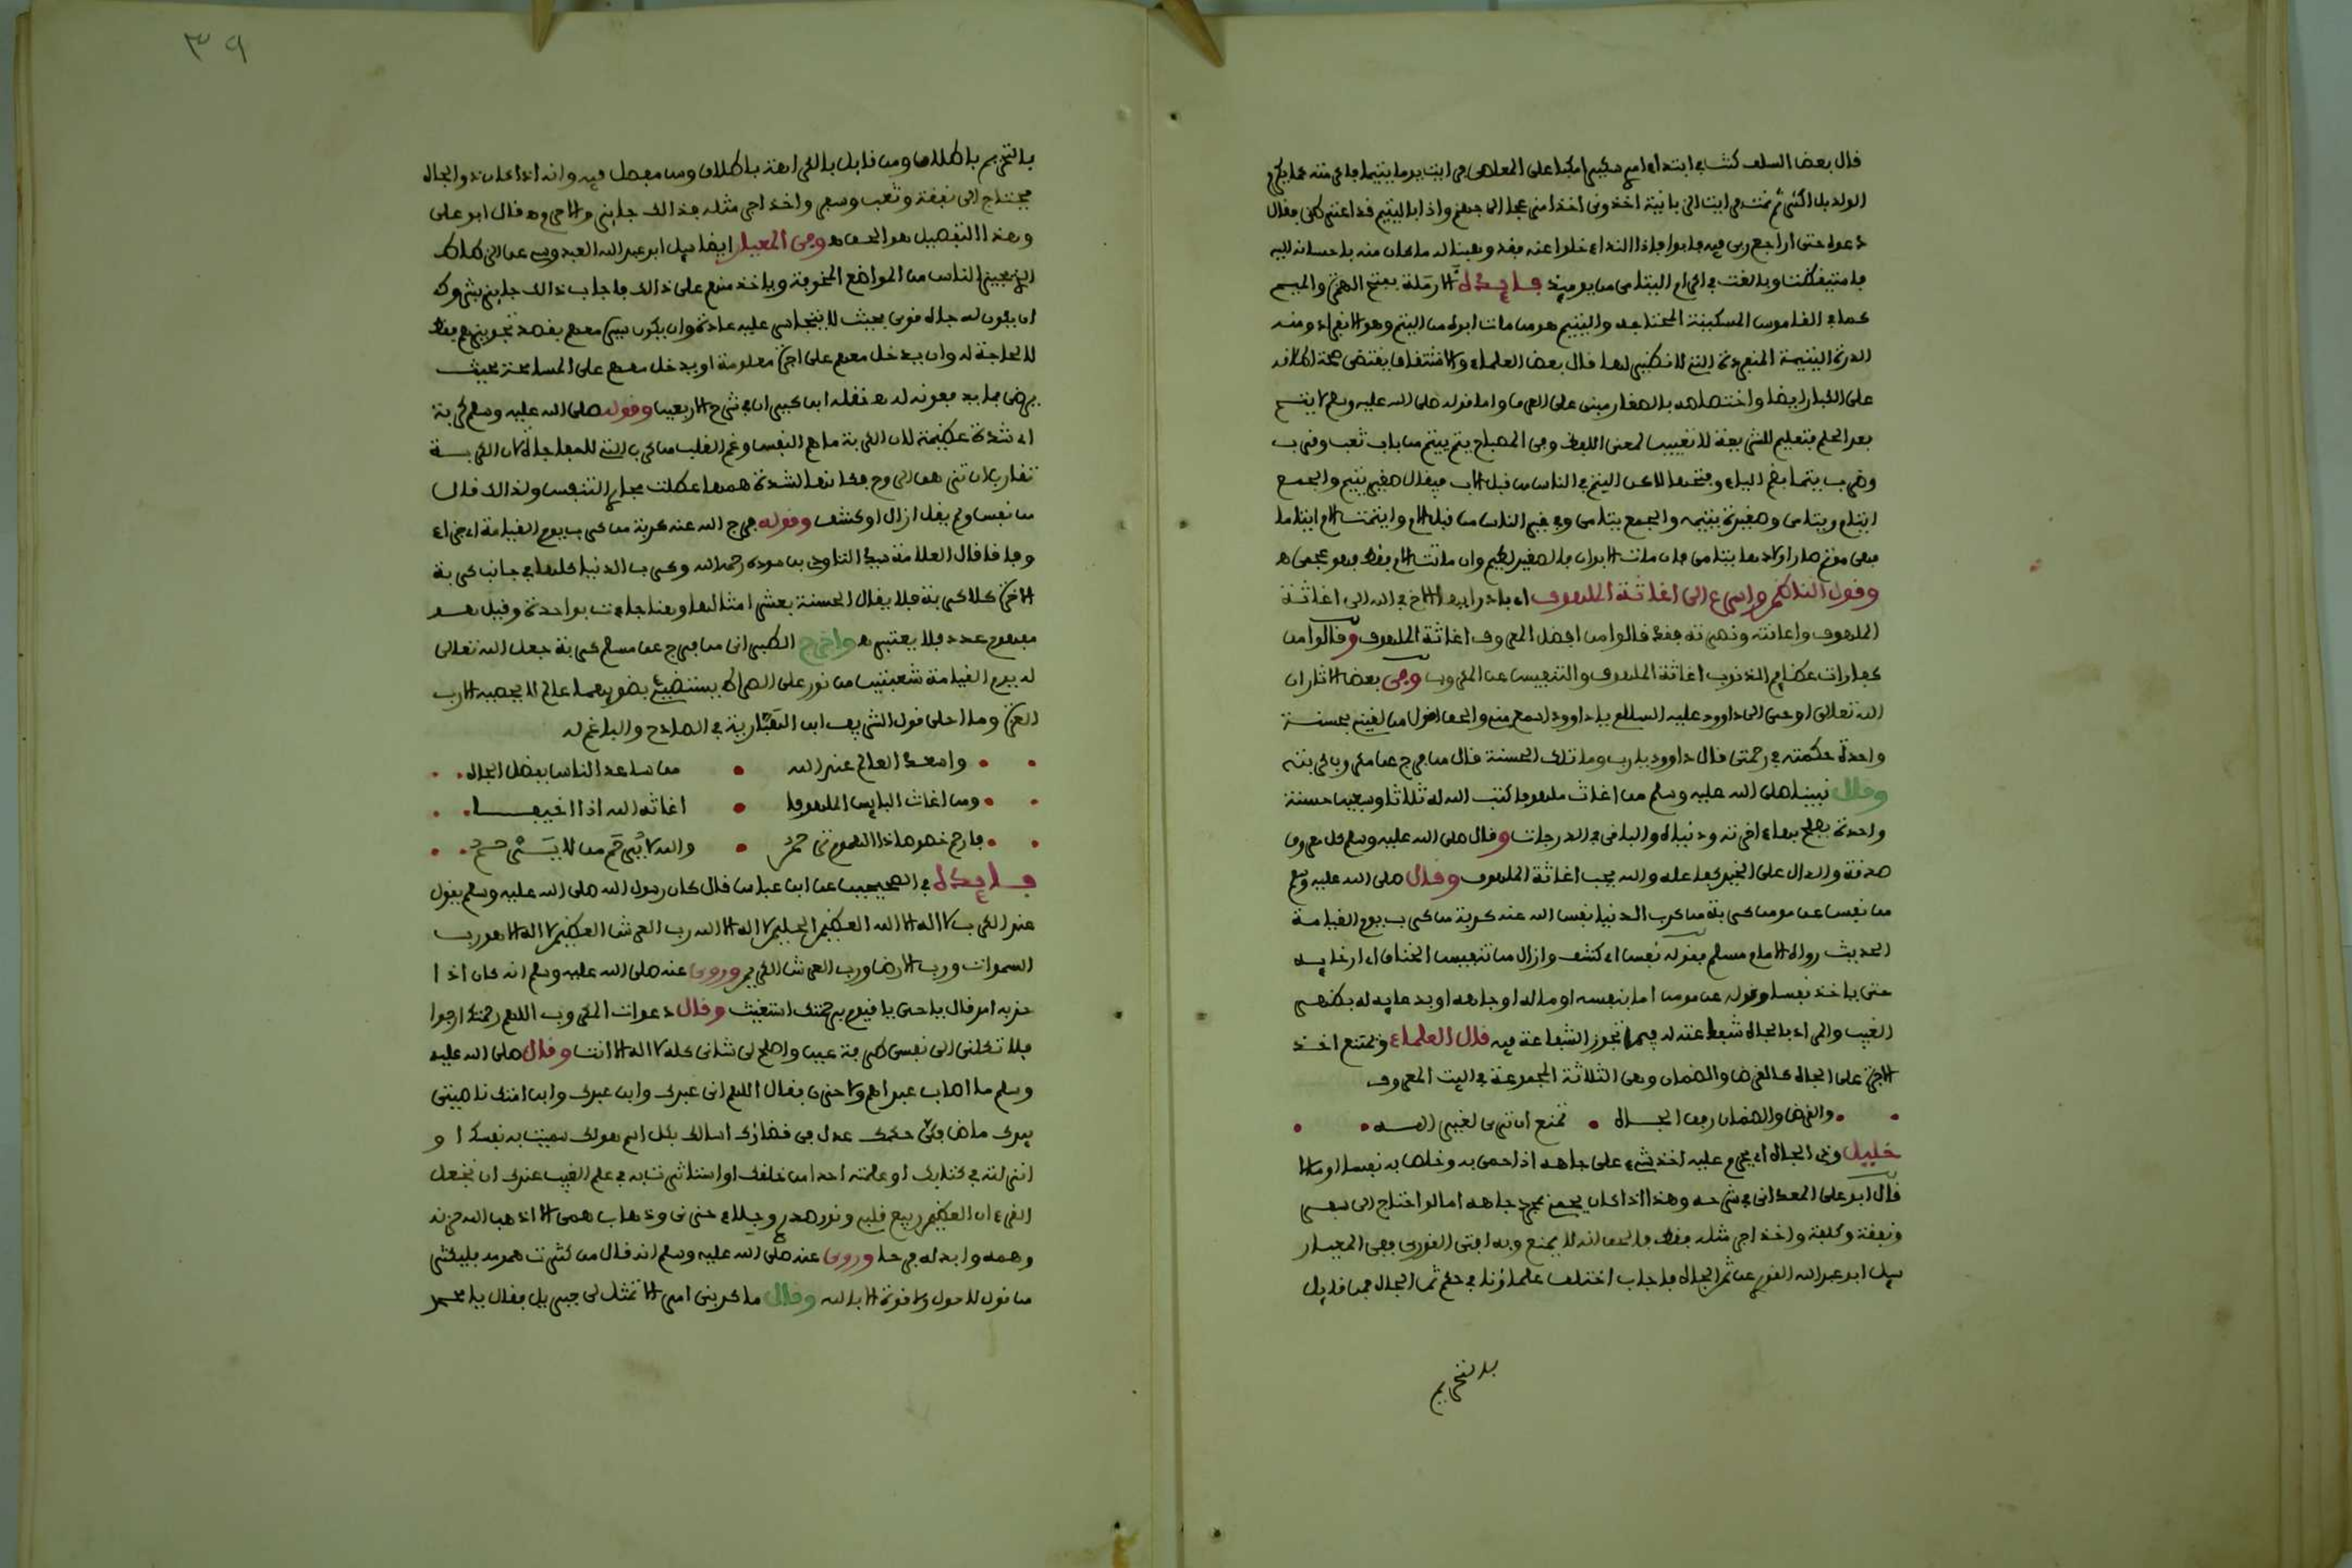 قال بعض السلف كنت في ابتداء امري سكيرا مكبا على المعاصي فرايت يوما يتيما فاكرمته كما يكرم
الولد بل اكثر ثم نمت فرايت الزبانية اخذوني اخذا مزعجا الى جهنم واذا باليتيم قد اعترضني فقال
دعوه حتى اراجع ربي فيه فابوا فاذا النداء خلوا عنه فقد وهبنا له ما كان منه باحسانه اليه
فاستيقظت وبالغت في اكرام اليتامى من يومئذ فايدة الارملة بفتح الهمزة والميم
كما في القاموس المسكينة المحتاجة واليتيم هو من مات ابوه من اليتم وهو الانفراد ومنه
الدرة اليتيمة المنفردة التي لا نظير لها قال بعض العلماء والاشتقاق يقتضي صحة اطلاقه
على الكبار ايضا واختصاصه بالصغار مبني على العرف واما قوله صلى الله عليه وسلم لا يتم
بعد الحلم فتعليم للشريعة لا تعيين لمعنى اللفظ وفي المصباح يتم ييتم من باب تعب وقرب
وضرب يتما بضم الياء وفتحها لكن اليتم في الناس من قبل الاب فيقال صغير يتيم والجمع
ايتام ويتامى وصغيرة يتيمة والجمع يتامى وفي غير الناس من قبل الام وايتمت الام ايتاما
فهي موتم صار اولادها يتامى فان مات الابوان فالصغير لطيم وان ماتت الام فقط فهو عجي هـ
وقول الناظم واسرع الى اغاثة الملهوف اي بادر ايها الاخ في الله الى اغاثة
الملهوف واعانته ونصرته فقد قالوا من افضل المعروف اغاثة الملهوف وقالوا من
كفارات عظام الذنوب اغاثة الملهوف والتنفيس عن المكروب وفي بعض الاثار ان
الله تعالى اوحى الى داوود عليه السلام يا داوود اسمع مني والحق اقول من لقيني بحسنة
واحدة حكمته في رحمتي قال داوود يا رب وما تلك الحسنة قال من فرج عن مكروب كربته
وقال نبينا صلى الله عليه وسلم من اغاث ملهوفا كتب الله له ثلاثا وسبعين حسنة
واحدة يصلح بها اخرته ودنياه والباقي في الدرجات وقال صلى الله عليه وسلم كل معروف
صدقة والدال على الخير كفاعله والله يحب اغاثة الملهوف وقال صلى الله عليه وسلم
من نفس عن مومن كربة من كرب الدنيا نفس الله عنه كربة من كرب يوم القيامة
الحديث رواه الامام مسلم فقوله نفس اي كشف وازال من تنفيس الخناق اي ارخايه
حتى ياخذ نفسا وقوله عن مومن اما بنفسه او ماله او جاهه او بدعايه له بظهر
الغيب والمراد بالجاه شفاعته له فيما تجوز الشفاعة فيه قال العلماء وتمتنع اخذ
الاجرة على الجاه كالقرض والضمان وهي الثلاثة المجموعة في البيت المعروف
والقرض والضمان رفق الجاه تمنع ان ترى لغير الله
خليل وذي الجاه اي يحرم عليه اخذ شيء على جاهه اذا حمى به وخلص به نفسا او مالا
قال ابو علي المعداني في شرحه وهذا اذا كان يحرز بمجرد جاهه اما لو احتاج الى سفر
ونفقة وكلفة واخذ اجر مثله فقط فالحق انه لا يمنع وبه افتى القوري ففي المعيار
سيل ابو عبد الله القوري عن ثمن الجاه فاجاب اختلف علماؤنا في حكم ثمن الجاه فمن قايل
بالتحريم
٣٩
بالتحريم باطلاق ومن قايل بالكراهة باطلاق ومن مفصل فيه وانه اذا كان ذو الجاه
يحتاج الى نفقة وتعب وسفر واخذ اجر مثله فذالك جايز والا حرم هـ قال ابو علي
وهذا التفصيل هو الحق هـ وفي المعيار ايضا سيل ابو عبد الله العبدوسي عن
الذي يجيز الناس من المواضع المخوفة وياخذ منهم على ذالك فاجاب ذالك جايز بشروط
ان يكون له جاه قوي بحيث لا يتجاسر عليه عادة وان يكون سيره معهم بقصد تجويزهم فقط
لا لحاجة له وان يدخل معهم على اجرة معلومة او يدخل معهم على المسامحة بحيث
يرضى بما يدفعونه له هـ نقله ابن خيران في شرح الاربعين وقوله صلى الله عليه وسلم كربة
اي شدة عظيمة لان الكربة ما اهم النفس وغم القلب من كرب التي للمفاجاة لان الكربة
تقارب ان تزهق الروح فكانها لشدة همها عطلت مجاري التنفس ولذالك قال
من نفس ولم يقل ازال او كشف وقوله فرج الله عنه كربة من كرب يوم القيامة اي جزاء
وفاقا قال العلامة سيدي التاودي بن سودة رحمه الله وكرب الدنيا كلها في جانب كربة
الاخرة كلا كربة فلا يقال الحسنة بعشر امثالها وهنا جاءت بواحدة وقيل هو
مفهوم عدد فلا يعتبر هـ واخرج الطبراني من فرج عن مسلم كربة جعل الله تعالى
له يوم القيامة شعبتين من نور على الصراط يستضيء بضويهما عالم لا يحصيه الا رب
العزة وما احلى قول الشريف ابن الهبارية في الصادح والباغم له
واسعد العالم عند الله من ساعد الناس بفضل الجاه
ومن اغاث البايس الملهوفا اغاثه الله اذا اخيفا
فارحم خضوعا اذا الهموم والله لا يرحم من لا يرحم
فايدة في الصحيحين عن ابن عباس قال كان رسول الله صلى الله عليه وسلم يقول
عند الكرب لا اله الا الله العظيم الحليم لا اله الا الله رب العرش العظيم لا اله الا هو رب
السموات ورب الارض ورب العرش الكريم وروي عنه صلى الله عليه وسلم انه كان اذا
حزبه امر قال يا حي يا قيوم برحمتك استغيث وقال دعوات المكروب اللهم رحمتك ارجوا
فلا تكلني الى نفسي طرفة عين واصلح لي شاني كله لا اله الا انت وقال صلى الله عليه
وسلم ما اصاب عبدا هم ولا حزن فقال اللهم اني عبدك وابن عبدك وابن امتك ناصيتي
بيدك ماض في حكمك عدل في قضاؤك اسالك بكل اسم هو لك سميت به نفسك او
انزلته في كتابك او علمته احدا من خلقك او استاثرت به في علم الغيب عندك ان تجعل
القرءان العظيم ربيع قلبي ونور صدري وجلاء حزني وذهاب همي الا اذهب الله حزنه
وهمه وابدله فرحا وروي عنه صلى الله عليه وسلم انه قال من كثرت همومه فليكثر
من قول لا حول ولا قوة الا بالله وقال ما كربني امر الا تمثل لي جبريل فقال يا محمد